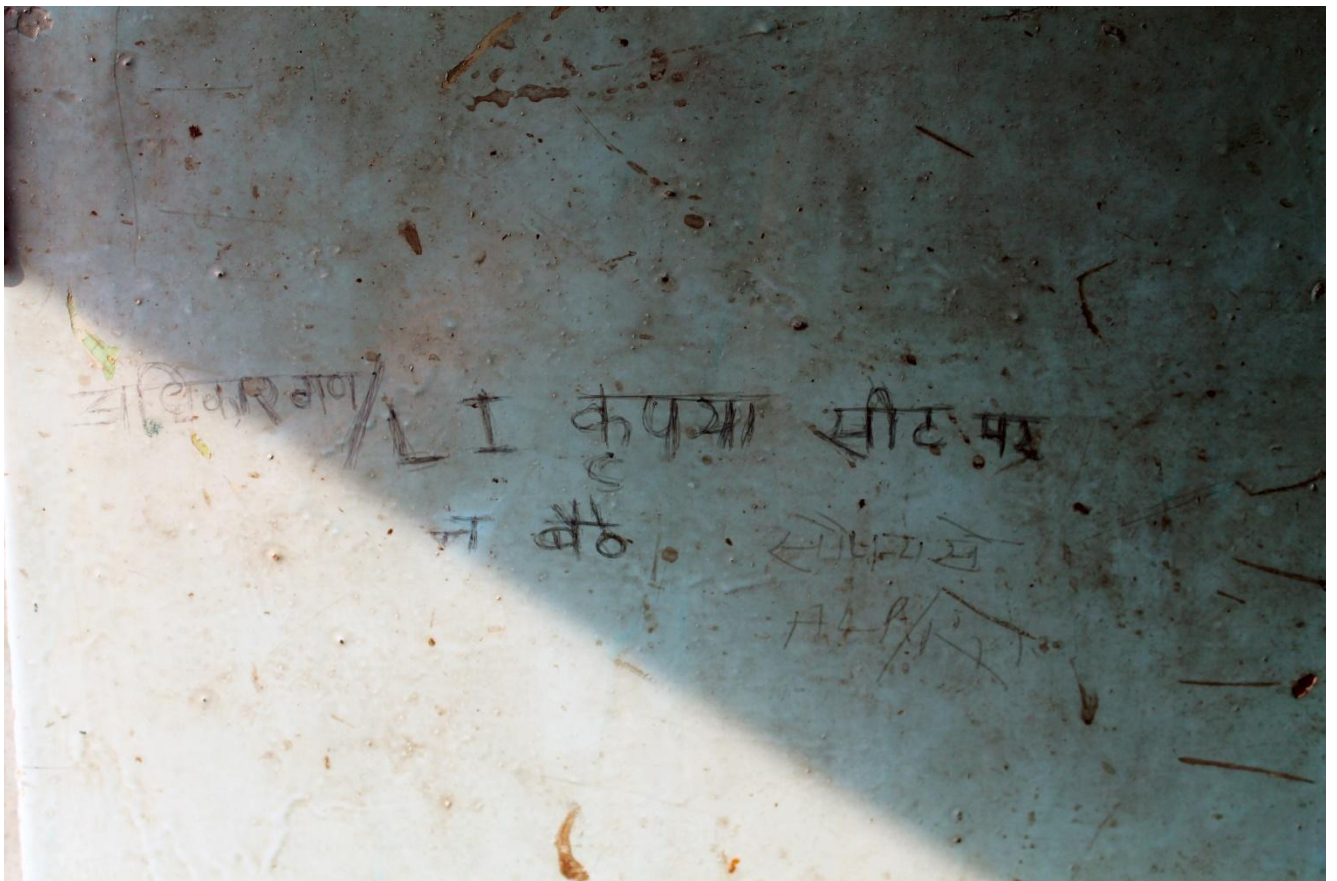 अधिकारगण/LI कृपया सीट पर
न बैठे।
सौजन्य से
ALP/